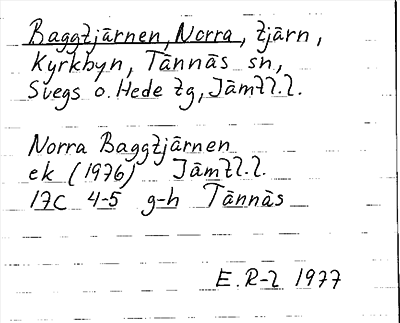 Baggtjärnen, Norra, tjärn,
Kyrkbyn, Tännäs sn,
Svegs o. Hede tg, Jämtl.l.
Norra Baggtjärnen
ek (1976) Jämtl.l.
17C 4-5 g-h Tännäs
E.R-l 1977